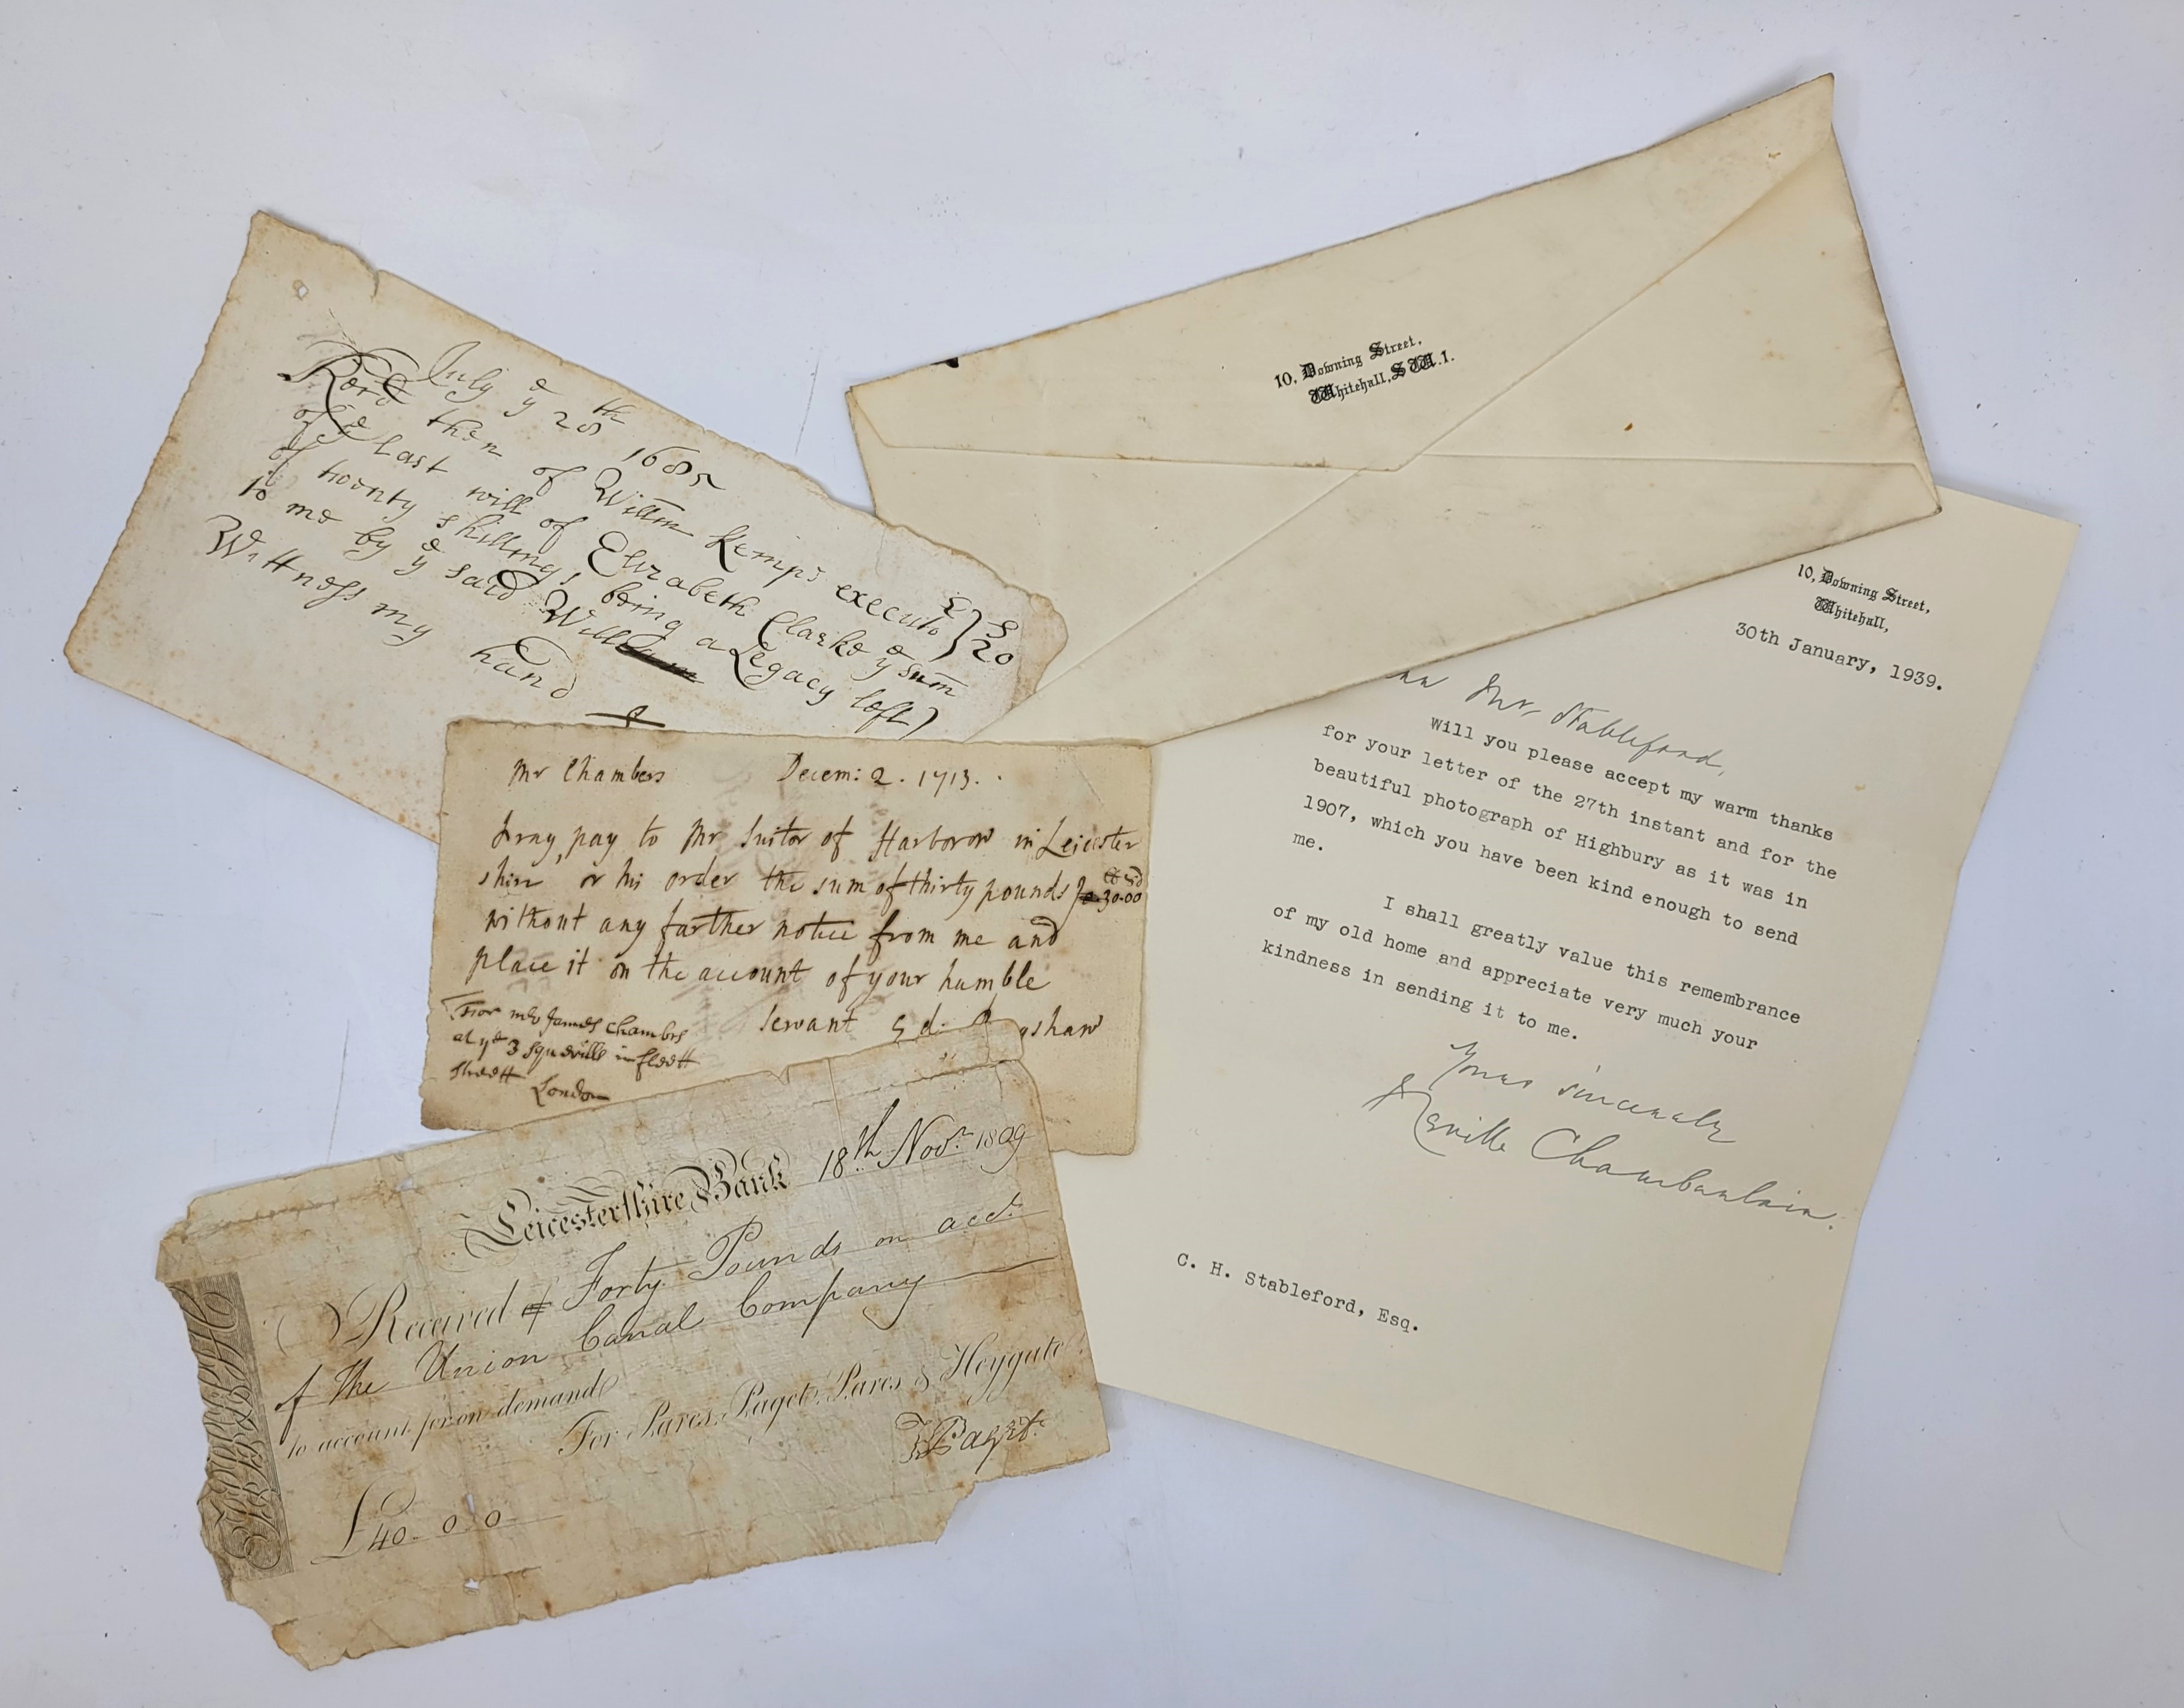 July yᵉ 28th 1685
Recd then of Willm Kemps executo
of yᵉ last will of Elizabeth Clarke yᵉ sum
of twenty shillings, being a Legacy left
to me by yᵉ said William
Wittness my hand
£ s
20
10, Downing Street,
Whitehall, S.W.1.
Mr Chambers Decem: 2. 1713.
Pray, pay to Mr Suitor of Harborow in Leicester
shire or his order the sum of thirty pounds 30.00
without any farther notice from me and
place it on the account of your humble
servant Ed. shaw
For mr James Chambrs
at yᵉ 3 in fleett
streett London
Leicestershire Bank 18th Novr. 1809
Received of Forty Pounds on acct.
of the Union Canal Company
to account for on demand
For Pares, Paget, Pares & Heygate
T Paget
£40-0.0
10, Downing Street,
Whitehall,
30th January, 1939.
Mr. Stableford,
Will you please accept my warm thanks
for your letter of the 27th instant and for the
beautiful photograph of Highbury as it was in
1907, which you have been kind enough to send
me.
I shall greatly value this remembrance
of my old home and appreciate very much your
kindness in sending it to me.
Yours sincerely
Neville Chamberlain.
C. H. Stableford, Esq.